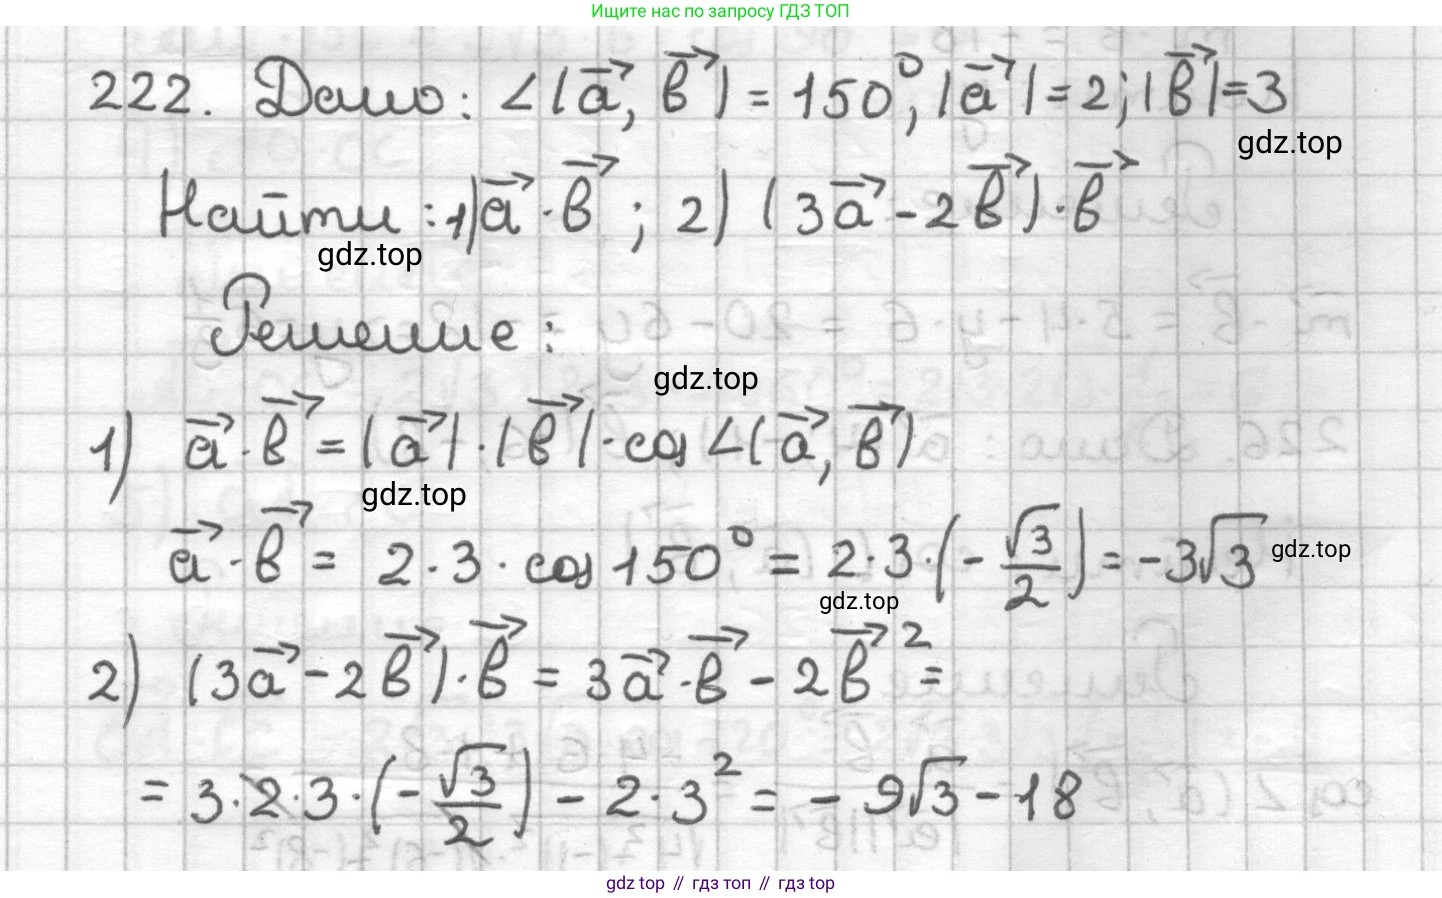 Ищите нас по запросу ГДЗ ТОП
222. Дано: ∠(a⃗, b⃗) = 150°, |a⃗| = 2; |b⃗| = 3
gdz.top
Найти: 1) a⃗ · b⃗ ; 2) (3a⃗ - 2b⃗) · b⃗
gdz.top
Решение:
gdz.top
1) a⃗ · b⃗ = |a⃗| · |b⃗| · cos ∠(a⃗, b⃗)
gdz.top
a⃗ · b⃗ = 2 · 3 · cos 150° = 2 · 3 · (-√3/2) = -3√3
gdz.top
gdz.top
2) (3a⃗ - 2b⃗) · b⃗ = 3a⃗ · b⃗ - 2b⃗² =
= 3 · 2 · 3 · (-√3/2) - 2 · 3² = -9√3 - 18
gdz top // гдз топ // гдз top